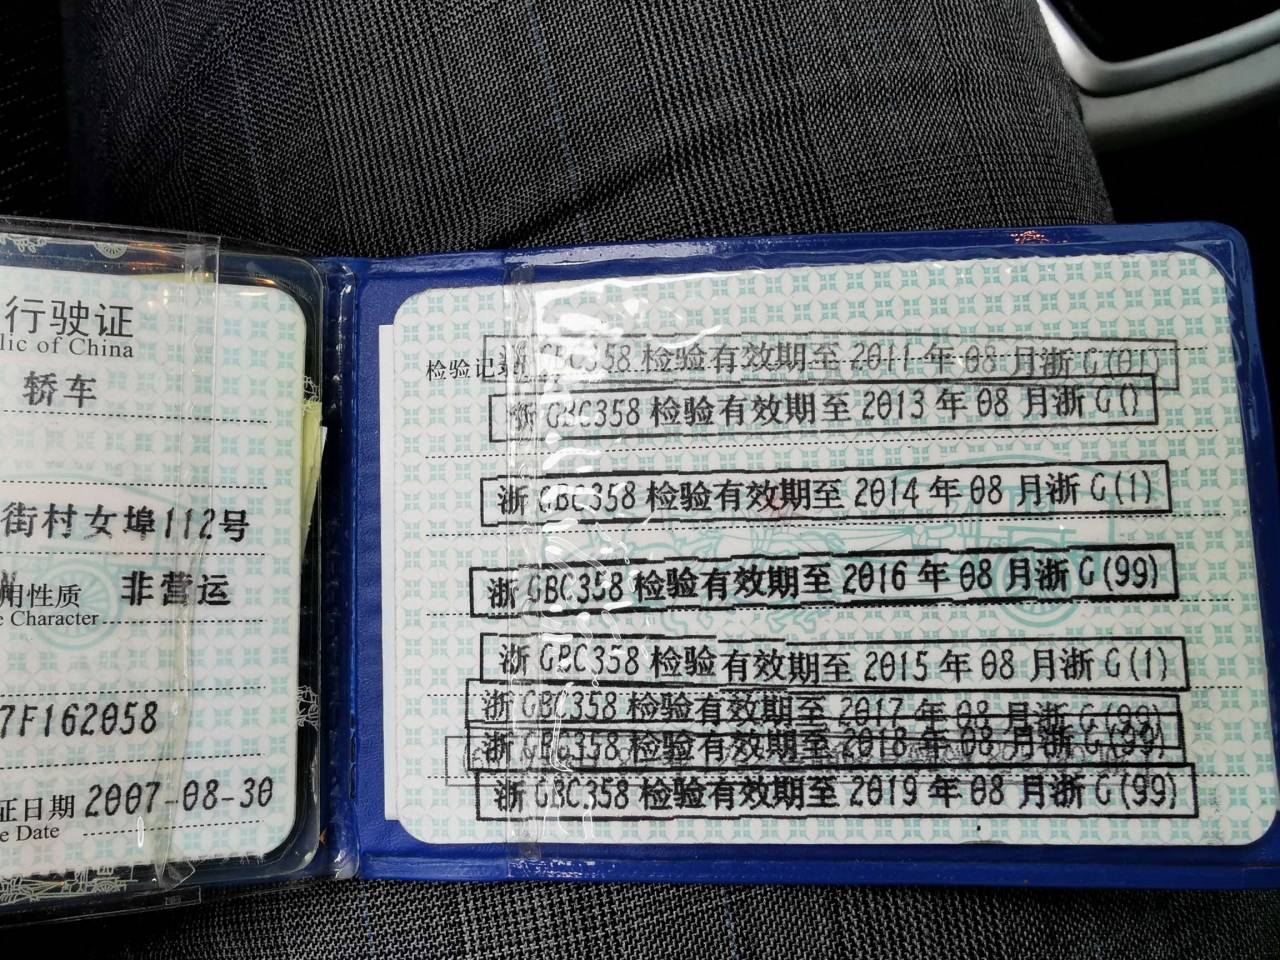 行驶证
lic of China
轿车
街村女埠112号
用性质 非营运
e Character
7F162058
证日期 2007-08-30
e Date
检验记
浙 GBC358 检验有效期至 2011 年 08 月浙 G(01)
浙 GBC358 检验有效期至 2013 年 08 月浙 G()
浙 GBC358 检验有效期至 2014 年 08 月浙 G(1)
浙 GBC358 检验有效期至 2016 年 08 月浙 G(99)
浙 GBC358 检验有效期至 2015 年 08 月浙 G(1)
浙 GBC358 检验有效期至 2017 年 08 月浙 G(99)
浙 GBC358 检验有效期至 2018 年 08 月浙 G(99)
浙 GBC358 检验有效期至 2019 年 08 月浙 G(99)